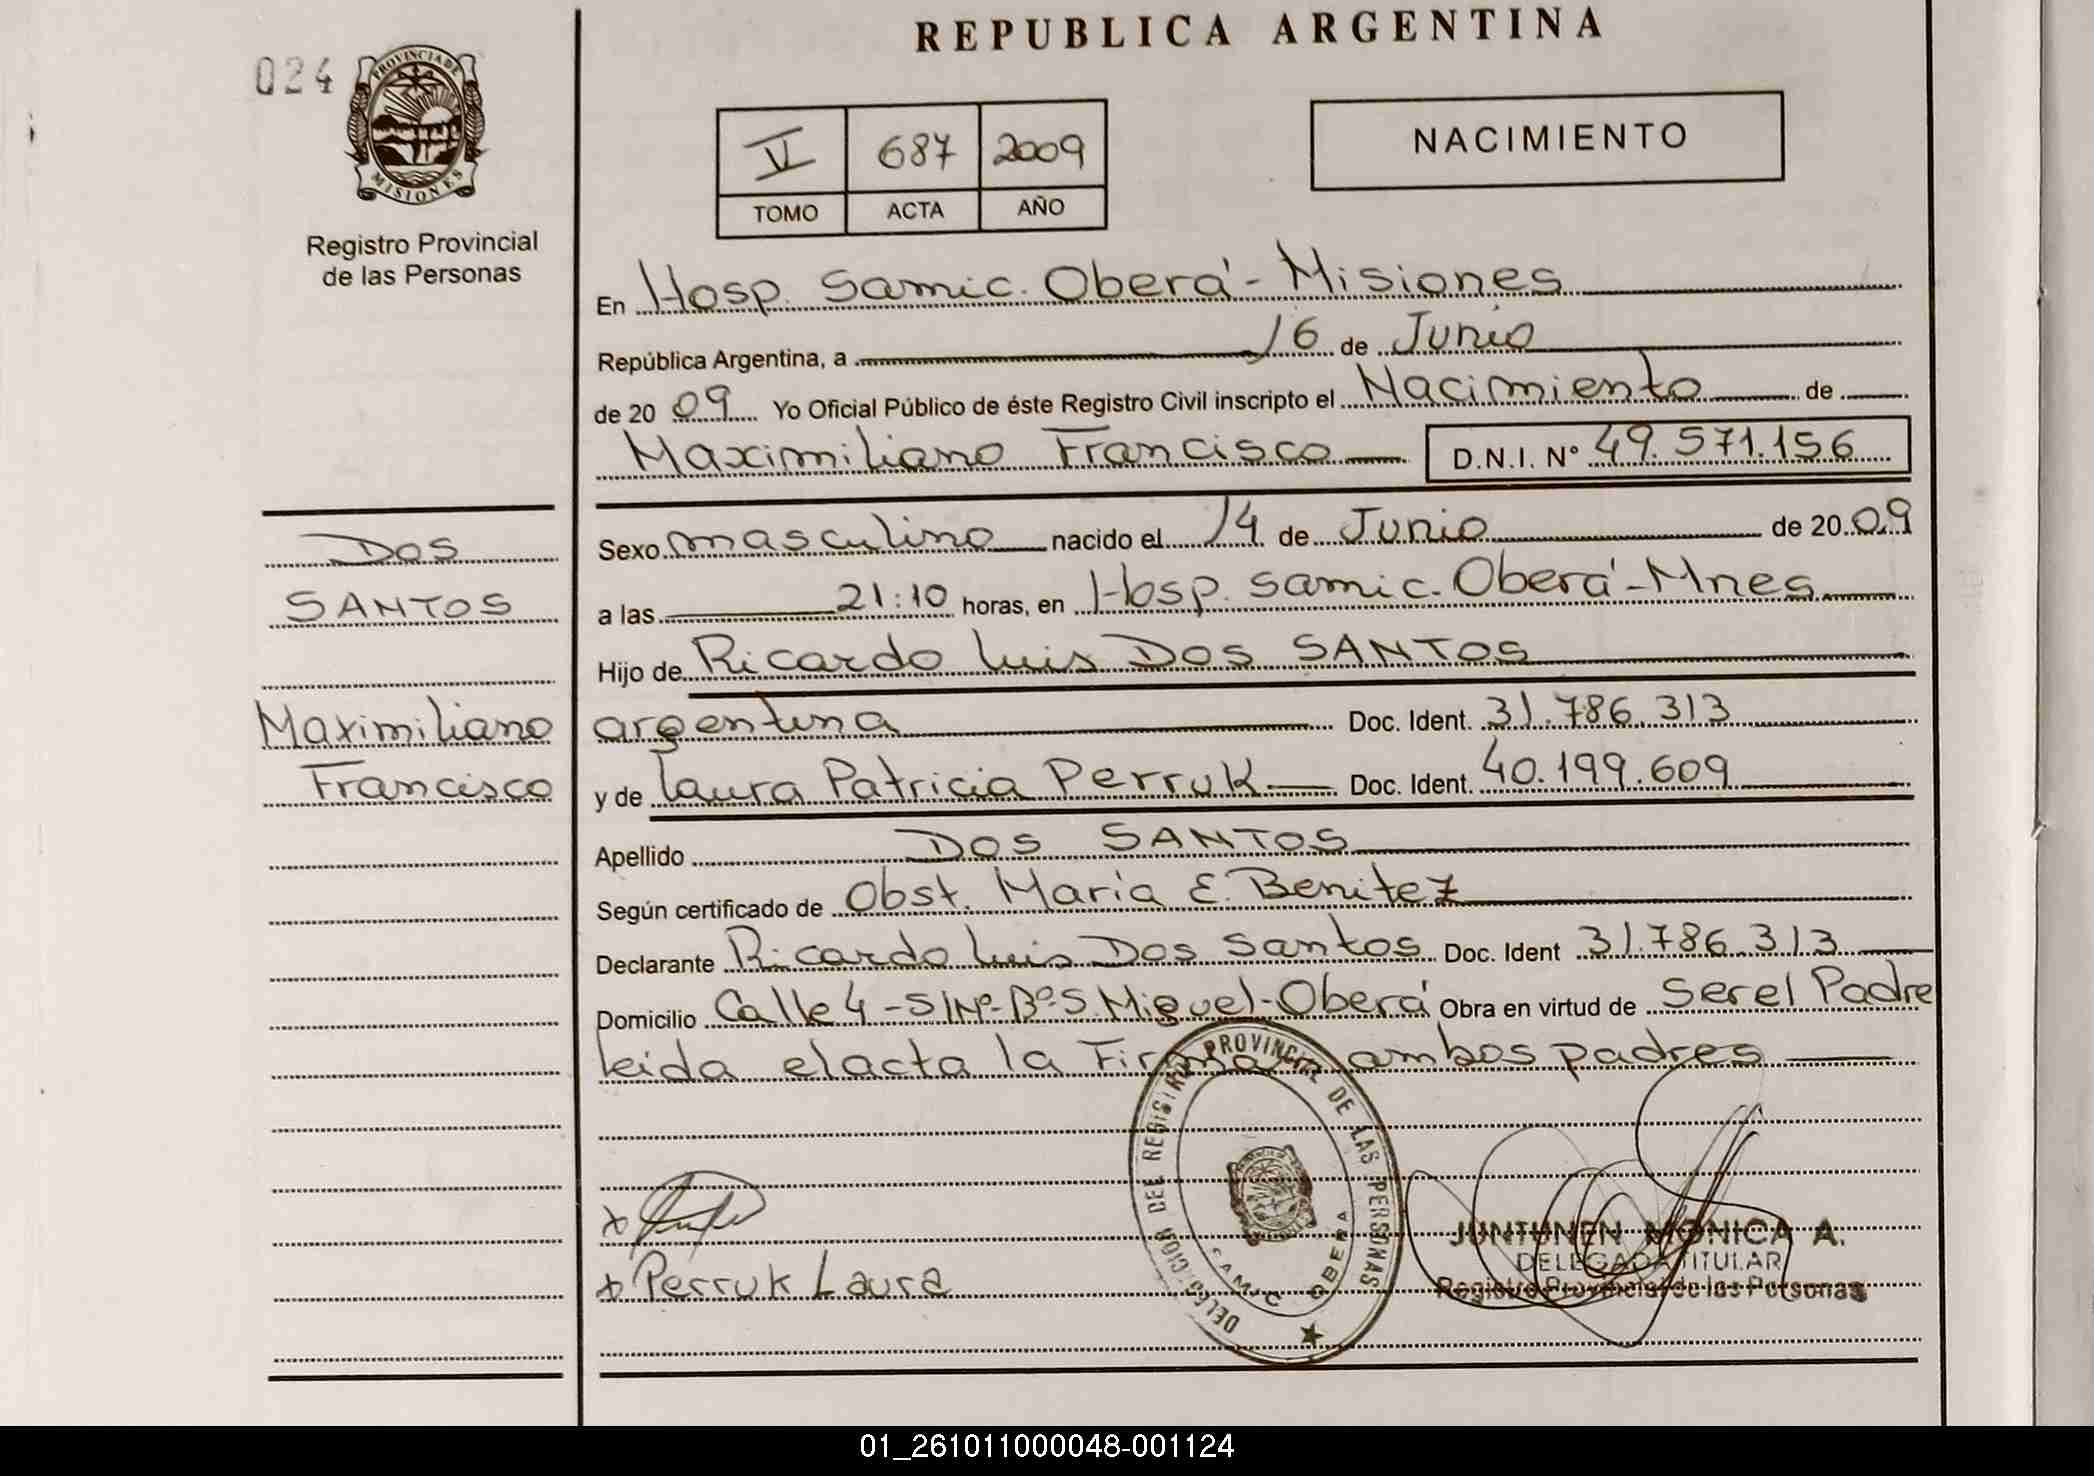 REPUBLICA ARGENTINA
024
PROVINCIA DE
MISIONES
Registro Provincial
de las Personas
V 687 2009
TOMO ACTA AÑO
NACIMIENTO
En Hosp. Samic. Oberá - Misiones
República Argentina, a 16 de Junio
de 2009 Yo Oficial Público de éste Registro Civil inscripto el Nacimiento de
Maximiliano Francisco D.N.I. N° 49.571.156
DOS
SANTOS
Maximiliano
Francisco
Sexo masculino nacido el 14 de Junio de 2009
a las 21:10 horas, en Hosp. Samic. Oberá - Mnes
Hijo de Ricardo Luis DOS SANTOS
argentina Doc. Ident. 31.786.313
y de Laura Patricia Perruk Doc. Ident. 40.199.609
Apellido DOS SANTOS
Según certificado de Obst. María E. Benitez
Declarante Ricardo Luis Dos Santos Doc. Ident 31.786.313
Domicilio Calle 4 - S/Nº - Bº S. Miguel - Oberá Obra en virtud de Ser el Padre
leida el acta la Firman ambos padres
DELEGACION DEL REGISTRO PROVINCIAL DE LAS PERSONAS
SAMIC OBERA
x Perruk Laura
JUNTUNEN MONICA A.
DELEGADA TITULAR
Registro Provincial de las Personas
01_261011000048-001124